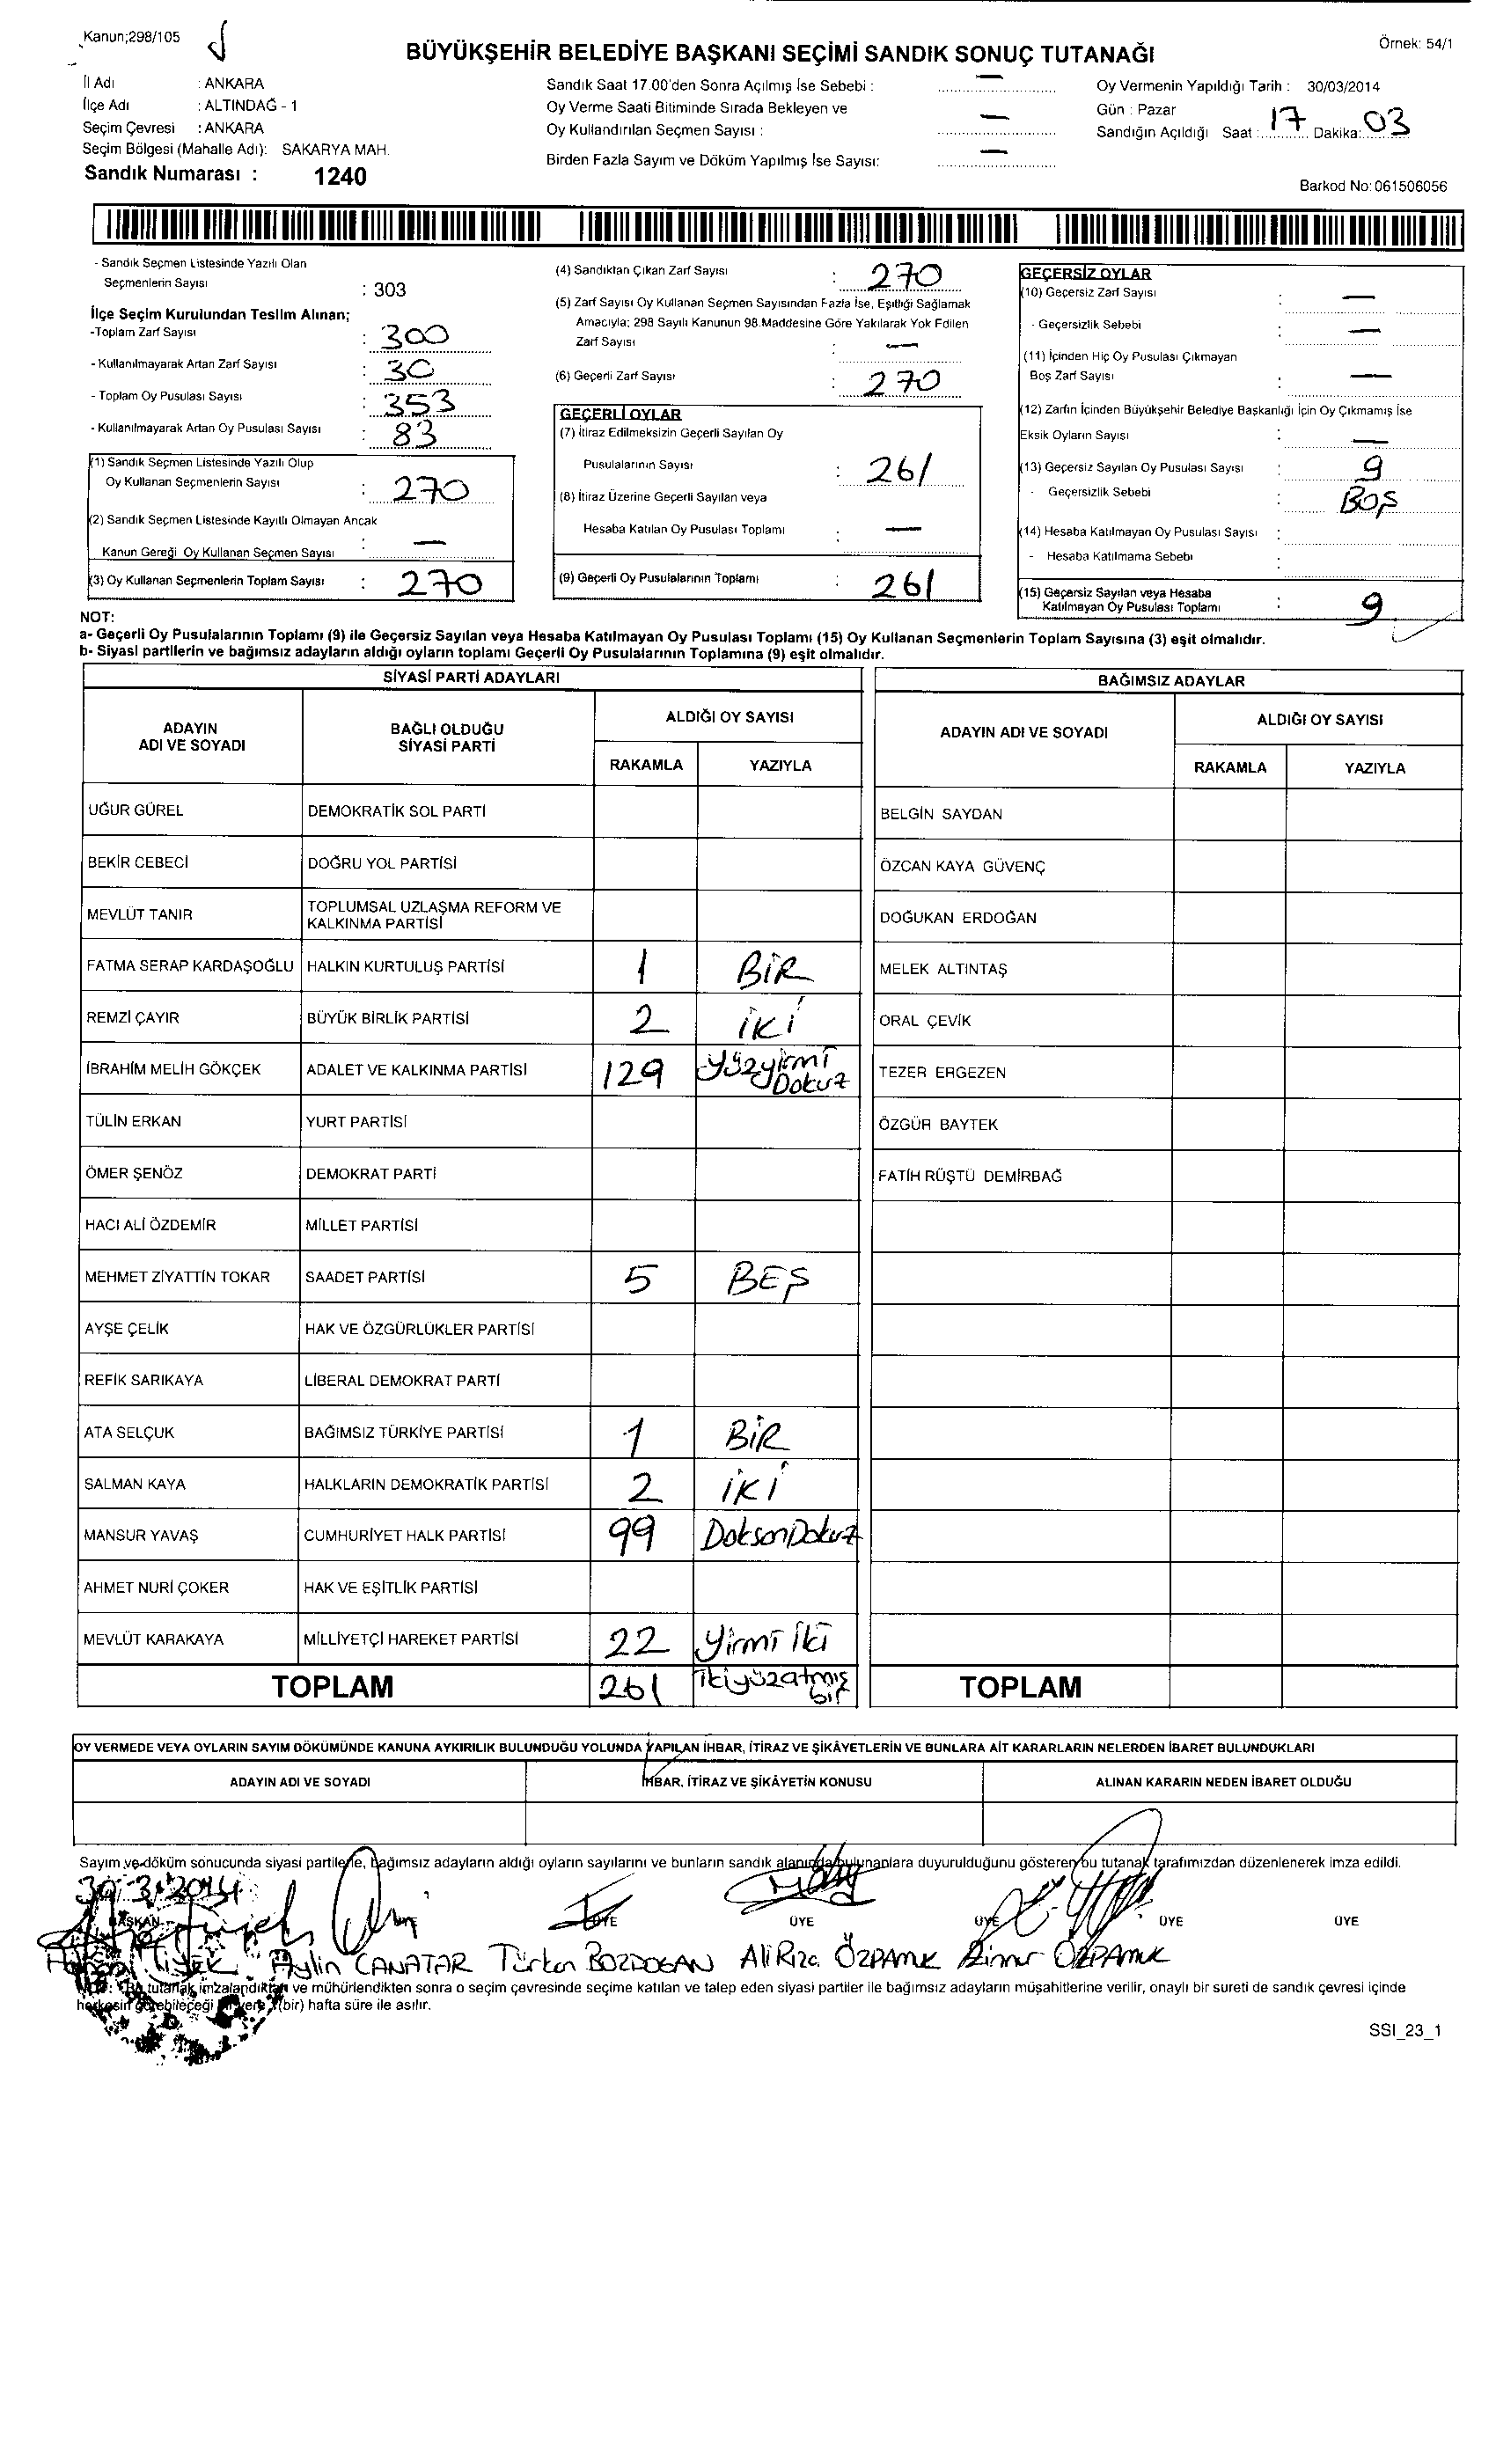 Kanun;298/105
Örnek: 54/1
BÜYÜKŞEHİR BELEDİYE BAŞKANI SEÇİMİ SANDIK SONUÇ TUTANAĞI
İl Adı : ANKARA
İlçe Adı : ALTINDAĞ - 1
Seçim Çevresi : ANKARA
Seçim Bölgesi (Mahalle Adı): SAKARYA MAH.
Sandık Numarası : 1240
Sandık Saat 17.00'den Sonra Açılmış İse Sebebi : —
Oy Verme Saati Bitiminde Sırada Bekleyen ve
Oy Kullandırılan Seçmen Sayısı : —
Birden Fazla Sayım ve Döküm Yapılmış İse Sayısı: —
Oy Vermenin Yapıldığı Tarih : 30/03/2014
Gün : Pazar
Sandığın Açıldığı Saat : 17 Dakika: 03
Barkod No: 061506056
- Sandık Seçmen Listesinde Yazılı Olan
Seçmenlerin Sayısı : 303
İlçe Seçim Kurulundan Teslim Alınan;
-Toplam Zarf Sayısı : 300
- Kullanılmayarak Artan Zarf Sayısı : 30
- Toplam Oy Pusulası Sayısı : 353
- Kullanılmayarak Artan Oy Pusulası Sayısı : 83
(1) Sandık Seçmen Listesinde Yazılı Olup
Oy Kullanan Seçmenlerin Sayısı : 270
(2) Sandık Seçmen Listesinde Kayıtlı Olmayan Ancak
Kanun Gereği Oy Kullanan Seçmen Sayısı : —
(3) Oy Kullanan Seçmenlerin Toplam Sayısı : 270
(4) Sandıktan Çıkan Zarf Sayısı : 270
(5) Zarf Sayısı Oy Kullanan Seçmen Sayısından Fazla İse, Eşitliği Sağlamak
Amacıyla; 298 Sayılı Kanunun 98.Maddesine Göre Yakılarak Yok Edilen
Zarf Sayısı : —
(6) Geçerli Zarf Sayısı : 270
GEÇERLİ OYLAR
(7) İtiraz Edilmeksizin Geçerli Sayılan Oy
Pusulalarının Sayısı : 261
(8) İtiraz Üzerine Geçerli Sayılan veya
Hesaba Katılan Oy Pusulası Toplamı : —
(9) Geçerli Oy Pusulalarının Toplamı : 261
GEÇERSİZ OYLAR
(10) Geçersiz Zarf Sayısı : —
- Geçersizlik Sebebi : —
(11) İçinden Hiç Oy Pusulası Çıkmayan
Boş Zarf Sayısı : —
(12) Zarfın İçinden Büyükşehir Belediye Başkanlığı İçin Oy Çıkmamış İse
Eksik Oyların Sayısı : —
(13) Geçersiz Sayılan Oy Pusulası Sayısı : 9
- Geçersizlik Sebebi : BOŞ
(14) Hesaba Katılmayan Oy Pusulası Sayısı :
- Hesaba Katılmama Sebebi :
(15) Geçersiz Sayılan veya Hesaba
Katılmayan Oy Pusulası Toplamı : 9
NOT:
a- Geçerli Oy Pusulalarının Toplamı (9) ile Geçersiz Sayılan veya Hesaba Katılmayan Oy Pusulası Toplamı (15) Oy Kullanan Seçmenlerin Toplam Sayısına (3) eşit olmalıdır.
b- Siyasi partilerin ve bağımsız adayların aldığı oyların toplamı Geçerli Oy Pusulalarının Toplamına (9) eşit olmalıdır.
SİYASİ PARTİ ADAYLARI
ADAYIN ADI VE SOYADI BAĞLI OLDUĞU SİYASİ PARTİ ALDIĞI OY SAYISI
RAKAMLA YAZIYLA
UĞUR GÜREL DEMOKRATİK SOL PARTİ
BEKİR CEBECİ DOĞRU YOL PARTİSİ
MEVLÜT TANIR TOPLUMSAL UZLAŞMA REFORM VE KALKINMA PARTİSİ
FATMA SERAP KARDAŞOĞLU HALKIN KURTULUŞ PARTİSİ 1 BİR
REMZİ ÇAYIR BÜYÜK BİRLİK PARTİSİ 2 İKİ
İBRAHİM MELİH GÖKÇEK ADALET VE KALKINMA PARTİSİ 129 Yüzyirmi Dokuz
TÜLİN ERKAN YURT PARTİSİ
ÖMER ŞENÖZ DEMOKRAT PARTİ
HACI ALİ ÖZDEMİR MİLLET PARTİSİ
MEHMET ZİYATTİN TOKAR SAADET PARTİSİ 5 BEŞ
AYŞE ÇELİK HAK VE ÖZGÜRLÜKLER PARTİSİ
REFİK SARIKAYA LİBERAL DEMOKRAT PARTİ
ATA SELÇUK BAĞIMSIZ TÜRKİYE PARTİSİ 1 BİR
SALMAN KAYA HALKLARIN DEMOKRATİK PARTİSİ 2 İKİ
MANSUR YAVAŞ CUMHURİYET HALK PARTİSİ 99 DoksanDokuz
AHMET NURİ ÇOKER HAK VE EŞİTLİK PARTİSİ
MEVLÜT KARAKAYA MİLLİYETÇİ HAREKET PARTİSİ 22 Yirmi İki
TOPLAM 261 İkiyüzatmış bir
BAĞIMSIZ ADAYLAR
ADAYIN ADI VE SOYADI ALDIĞI OY SAYISI
RAKAMLA YAZIYLA
BELGİN SAYDAN
ÖZCAN KAYA GÜVENÇ
DOĞUKAN ERDOĞAN
MELEK ALTINTAŞ
ORAL ÇEVİK
TEZER ERGEZEN
ÖZGÜR BAYTEK
FATİH RÜŞTÜ DEMİRBAĞ
TOPLAM
OY VERMEDE VEYA OYLARIN SAYIM DÖKÜMÜNDE KANUNA AYKIRILIK BULUNDUĞU YOLUNDA YAPILAN İHBAR, İTİRAZ VE ŞİKÂYETLERİN VE BUNLARA AİT KARARLARIN NELERDEN İBARET BULUNDUKLARI
ADAYIN ADI VE SOYADI İHBAR, İTİRAZ VE ŞİKÂYETİN KONUSU ALINAN KARARIN NEDEN İBARET OLDUĞU
Sayım ve döküm sonucunda siyasi partilerle, bağımsız adayların aldığı oyların sayılarını ve bunların sandık alanında bulunanlara duyurulduğunu gösteren bu tutanak tarafımızdan düzenlenerek imza edildi.
30.3.2014
BAŞKAN ÜYE ÜYE ÜYE ÜYE ÜYE ÜYE
Aylin CANATAR Türkan BOZDOGAN Ali Rıza ÖZPAMUK ÖZPAMUK
Bu tutanak imzalandıktan ve mühürlendikten sonra o seçim çevresinde seçime katılan ve talep eden siyasi partiler ile bağımsız adayların müşahitlerine verilir, onaylı bir sureti de sandık çevresi içinde
herkesin görebileceği bir yere (bir) hafta süre ile asılır.
SSI_23_1